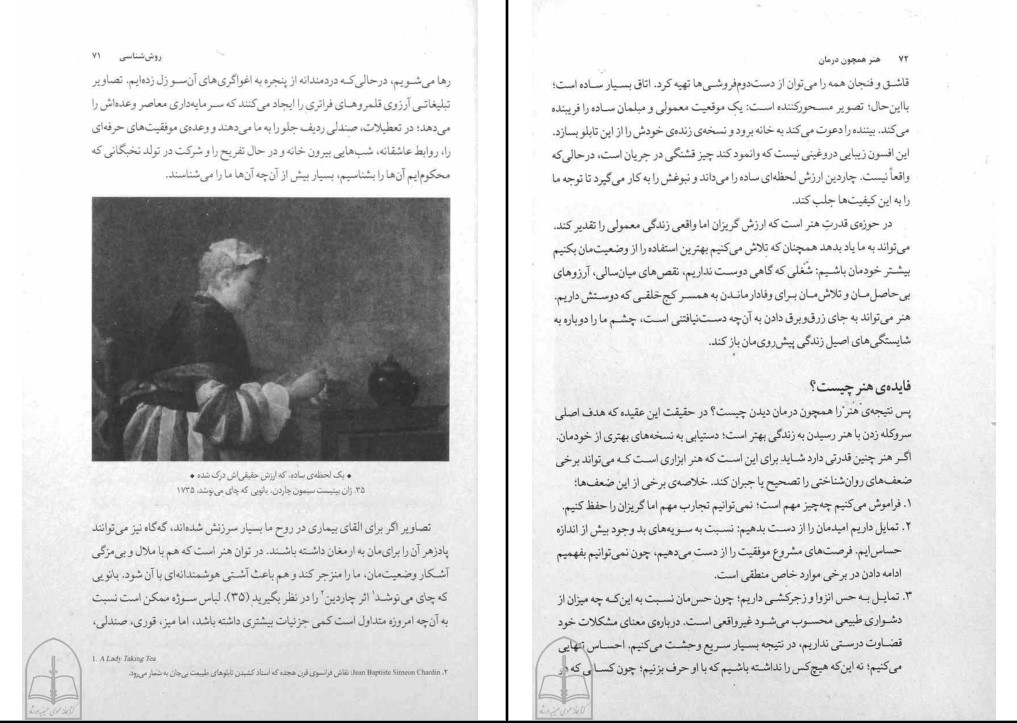 روش‌شناسی ۷۱
رها می‌شویم، درحالی‌که دردمندانه از پنجره به اغواگری‌های آن‌سو زل زده‌ایم. تصاویر
تبلیغاتی آرزوی قلمروهای فراتری را ایجاد می‌کنند که سرمایه‌داری معاصر وعده‌اش را
می‌دهد؛ در تعطیلات، صندلی ردیف جلو را به ما می‌دهند و وعده‌ی موفقیت‌های حرفه‌ای
را، روابط عاشقانه، شب‌هایی بیرون خانه و در حال تفریح را و شرکت در تولد نخبگانی که
محکوم‌ایم آن‌ها را بشناسیم، بسیار بیش از آن‌چه آن‌ها ما را می‌شناسند.
♦ یک لحظه‌ی ساده، که ارزش حقیقی‌اش درک شده ♦
۳۵. ژان بپتیست سیمون چاردن، بانویی که چای می‌نوشد، ۱۷۳۵
تصاویر اگر برای القای بیماری در روح ما بسیار سرزنش شده‌اند، گه‌گاه نیز می‌توانند
پادزهر آن را برای‌مان به ارمغان داشته باشند. در توان هنر است که هم با ملال و بی‌مزگی
آشکار وضعیت‌مان، ما را منزجر کند و هم باعث آشتی هوشمندانه‌ای با آن شود. بانویی
که چای می‌نوشد۱ اثر چاردین۲ را در نظر بگیرید (۳۵). لباس سوژه ممکن است نسبت
به آن‌چه امروزه متداول است کمی جزئیات بیشتری داشته باشد، اما میز، قوری، صندلی،
1. A Lady Taking Tea
۲. Jean Baptiste Simeon Chardin: نقاش فرانسوی قرن هجده که استاد کشیدن تابلوهای طبیعت بی‌جان به شمار می‌رود.
۷۲ هنر همچون درمان
قاشق و فنجان همه را می‌توان از دست‌دوم‌فروشی‌ها تهیه کرد. اتاق بسیار ساده است؛
بااین‌حال؛ تصویر مسحورکننده است: یک موقعیت معمولی و مبلمان ساده را فریبنده
می‌کند. بیننده را دعوت می‌کند به خانه برود و نسخه‌ی زنده‌ی خودش را از این تابلو بسازد.
این افسون زیبایی دروغینی نیست که وانمود کند چیز قشنگی در جریان است، درحالی‌که
واقعاً نیست. چاردین ارزش لحظه‌ای ساده را می‌داند و نبوغش را به کار می‌گیرد تا توجه ما
را به این کیفیت‌ها جلب کند.
در حوزه‌ی قدرتِ هنر است که ارزش گریزان اما واقعی زندگی معمولی را تقدیر کند.
می‌تواند به ما یاد بدهد همچنان که تلاش می‌کنیم بهترین استفاده را از وضعیت‌مان بکنیم
بیشتر خودمان باشیم: شغلی که گاهی دوست نداریم، نقص‌های میان‌سالی، آرزوهای
بی‌حاصل‌مان و تلاش‌مان برای وفادارماندن به همسر کج‌خلقی که دوستش داریم.
هنر می‌تواند به جای زرق‌وبرق دادن به آن‌چه دست‌نیافتنی است، چشم ما را دوباره به
شایستگی‌های اصیل زندگی پیش‌روی‌مان باز کند.
فایده‌ی هنر چیست؟
پس نتیجه‌ی هنر را همچون درمان دیدن چیست؟ در حقیقت این عقیده که هدف اصلی
سروکله زدن با هنر رسیدن به زندگی بهتر است؛ دستیابی به نسخه‌های بهتری از خودمان.
اگر هنر چنین قدرتی دارد شاید برای این است که هنر ابزاری است که می‌تواند برخی
ضعف‌های روان‌شناختی را تصحیح یا جبران کند. خلاصه‌ی برخی از این ضعف‌ها:
۱. فراموش می‌کنیم چه‌چیز مهم است؛ نمی‌توانیم تجارب مهم اما گریزان را حفظ کنیم.
۲. تمایل داریم امیدمان را از دست بدهیم: نسبت به سویه‌های بد وجود بیش از اندازه
حساس‌ایم. فرصت‌های مشروع موفقیت را از دست می‌دهیم، چون نمی‌توانیم بفهمیم
ادامه دادن در برخی موارد خاص منطقی است.
۳. تمایل به حس انزوا و زجرکشی داریم؛ چون حس‌مان نسبت به این‌که چه میزان از
دشواری طبیعی محسوب می‌شود غیرواقعی است. درباره‌ی معنای مشکلات خود
قضاوت درستی نداریم، در نتیجه بسیار سریع وحشت می‌کنیم. احساس تنهایی
می‌کنیم؛ نه این‌که هیچ‌کس را نداشته باشیم که با او حرف بزنیم؛ چون کسانی که در